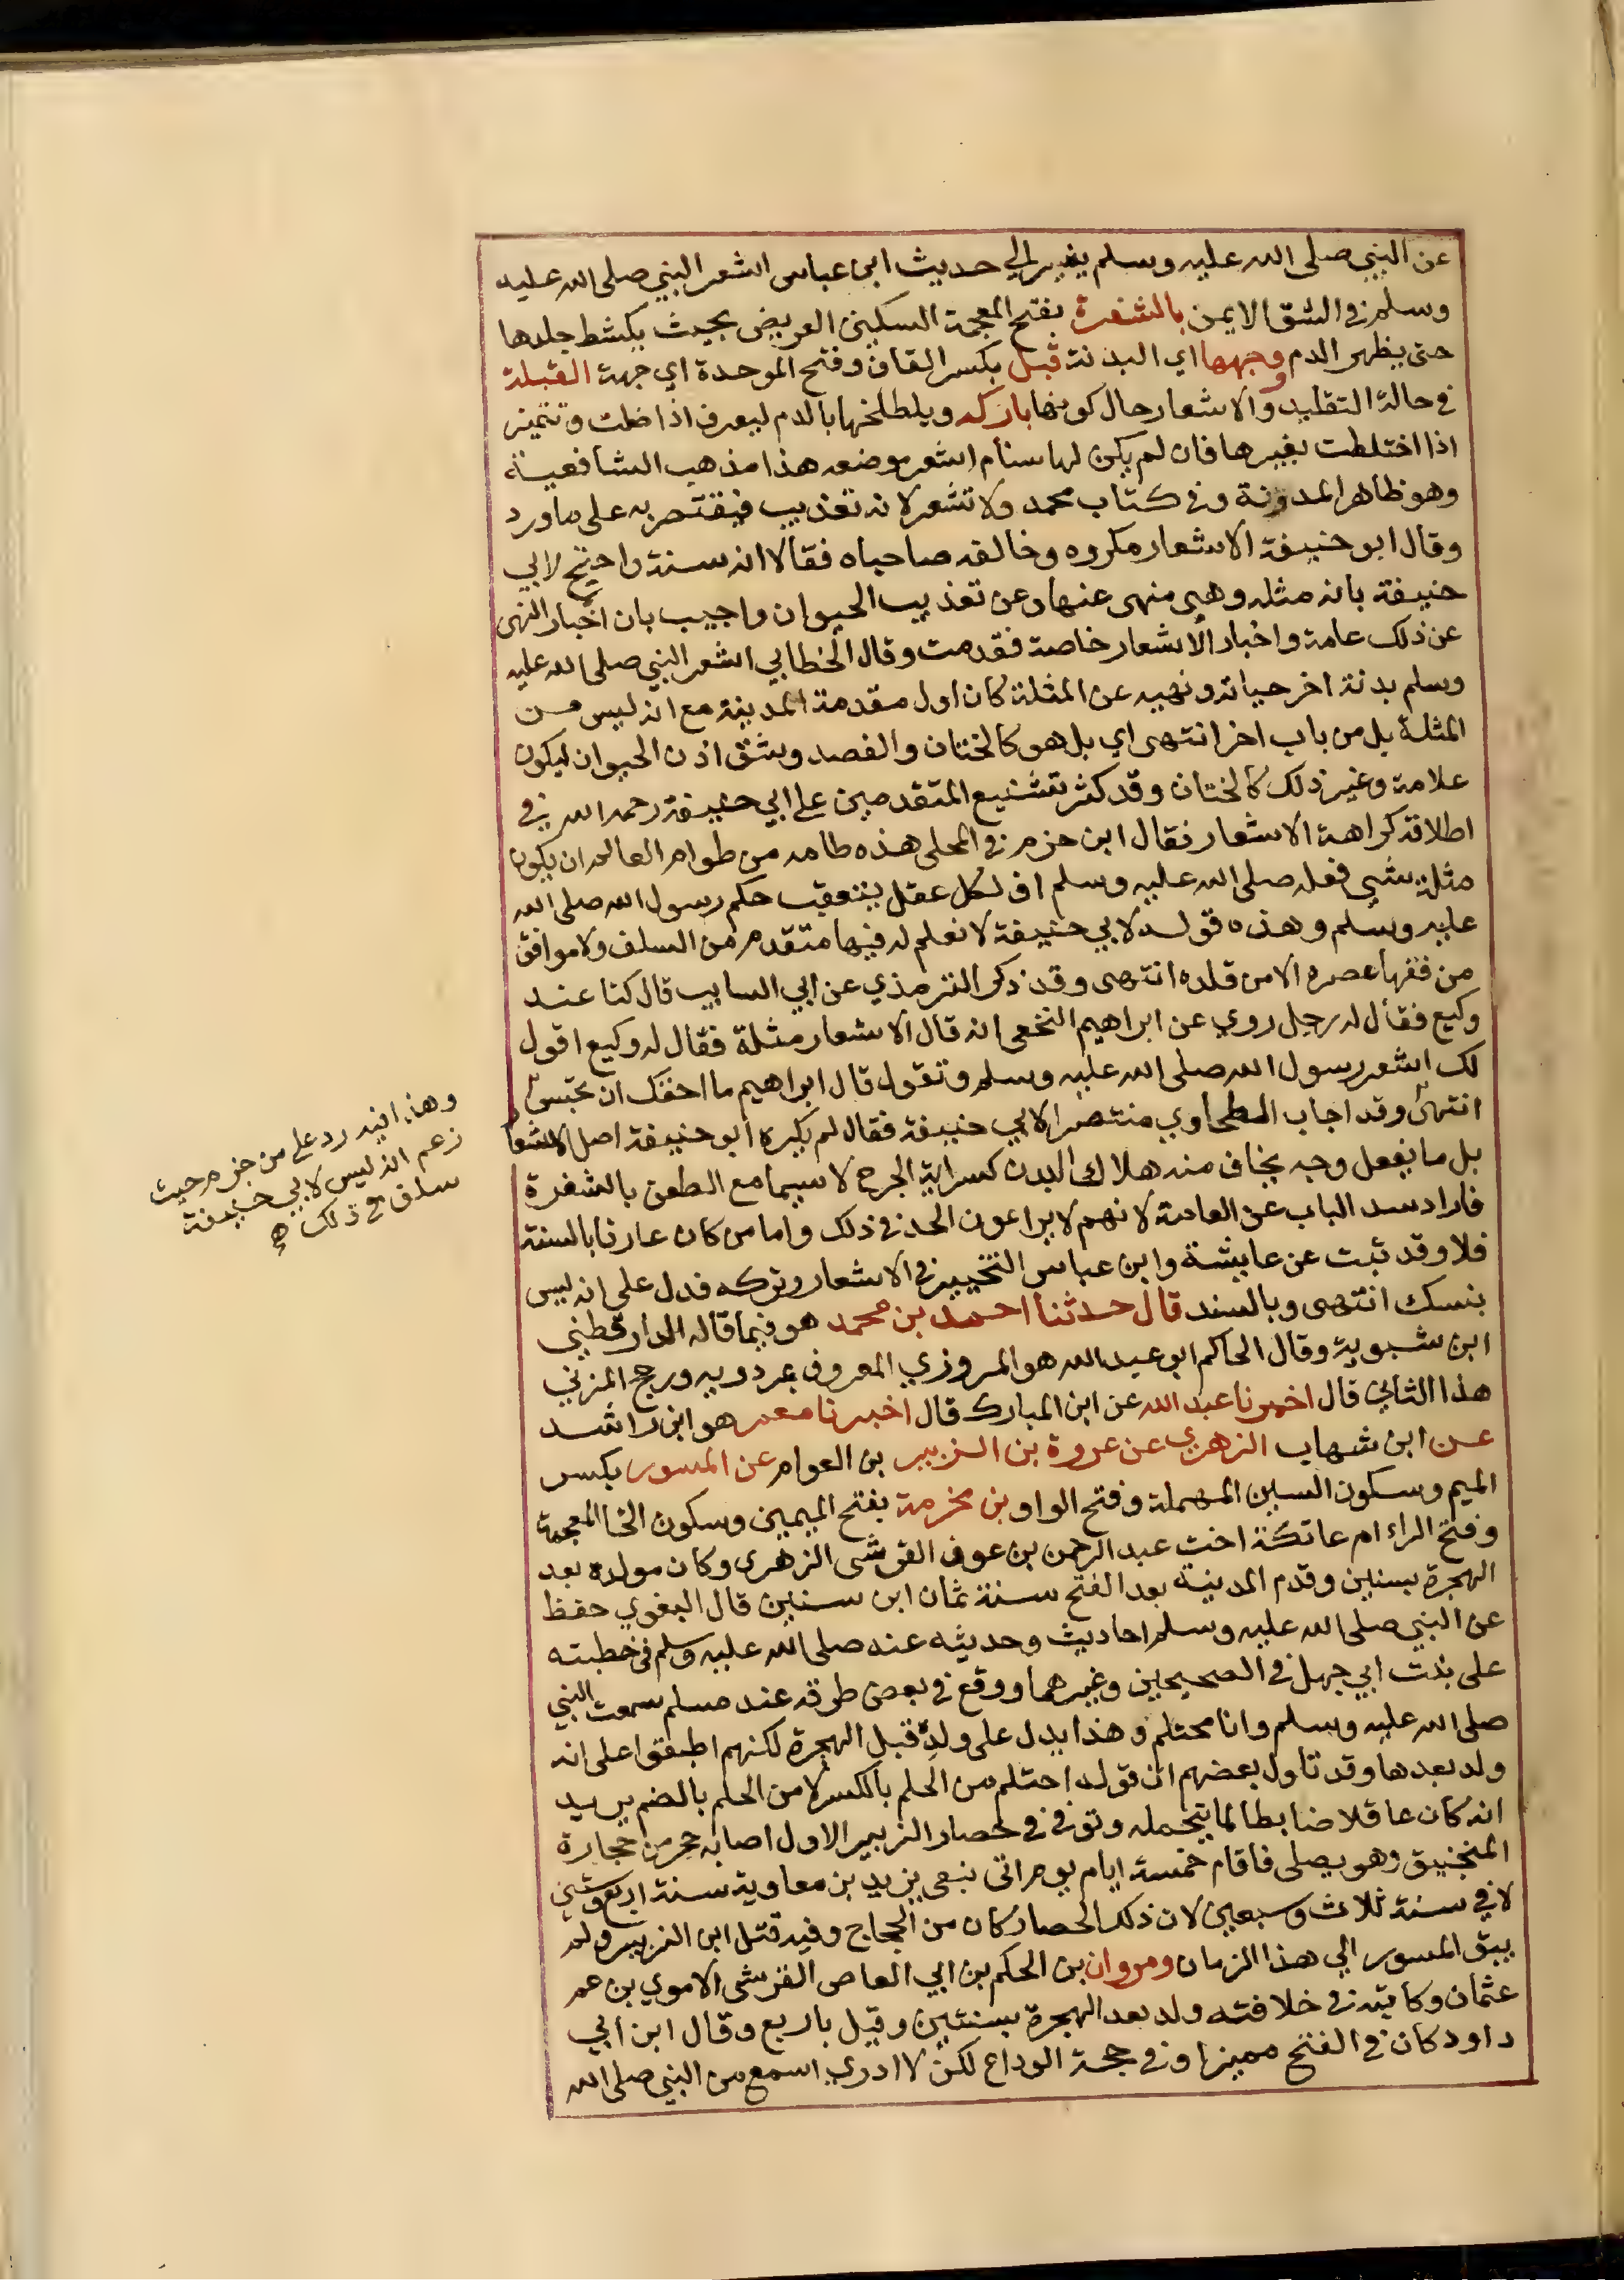 عن النبي صلى الله عليه وسلم يشير الي حديث ابن عباس اشعر النبي صلى الله عليه
وسلم في الشق الايمن بالشفرة بفتح المعجمة السكين العريض بحيث يكشط جلدها
حتى يظهر الدم ووجهها اي البدنة قبل بكسر القاف وفتح الموحدة اي جهة القبلة
في حالة التقليد والاشعار حال كونها باركه ويلطخها بالدم ليعرف اذا ضلت وتتميز
اذا اختلطت بغيرها فان لم يكن لها سنام اشعر موضعه هذا مذهب الشافعية
وهو ظاهر المدونة وفي كتاب محمد ولا تشعر لانه تعذيب فيقتصر به على ما ورد
وقال ابو حنيفة الاشعار مكروه وخالفه صاحباه فقالا انه سنة واحتج لابي
حنيفة بانه مثله وهي منهى عنها وعن تعذيب الحيوان واجيب بان اخبار النهى
عن ذلك عامة واخبار الاشعار خاصة فقدمت وقال الخطابي اشعر النبي صلى الله عليه
وسلم بدنة اخر حياته ونهيه عن المثلة كان اول مقدمة المدينة مع انه ليس من
المثلة بل من باب اخر انتهى اي بل هو كالختان والفصد وشق اذن الحيوان ليكون
علامة وغير ذلك كالختان وقد كثر تشنيع المتقدمين على ابي حنيفة رحمه الله في
اطلاقه كراهة الاشعار فقال ابن حزم في المحلى هذه طامه من طوام العالم ان يكون
مثلة شي فعله صلى الله عليه وسلم اف لكل عقل يتعقب حكم رسول الله صلى الله
عليه وسلم وهذه قوله لابي حنيفة لا نعلم له فيها متقدم من السلف ولا موافق
من فقها عصره الا من قلده انتهى وقد ذكر الترمذي عن ابي السايب قال كنا عند
وكيع فقال له رجل روي عن ابراهيم النخعي انه قال الاشعار مثلة فقال له وكيع اقول
لك اشعر رسول الله صلى الله عليه وسلم وتقول قال ابراهيم ما احقك ان تحبس
انتهى وقد اجاب الطحاوي منتصرا لابي حنيفة فقال لم يكره ابو حنيفة اصل الاشعار
بل ما يفعل وجه يخاف منه هلاك البدن كسراية الجرح لا سيما مع الطعن بالشفرة
فاراد سد الباب عن العامة لانهم لا يراعون الحد في ذلك واما من كان عارفا بالسنة
فلا وقد ثبت عن عايشة وابن عباس التخيير في الاشعار وتركه فدل على انه ليس
بنسك انتهى وبالسند قال حدثنا احمد بن محمد هو فيما قاله الدارقطني
ابن شبوية وقال الحاكم ابو عبد الله هو المروزي المعروف بمردويه ورجح المزني
هذا الثاني قال اخبرنا عبد الله عن ابن المبارك قال اخبرنا معمر هو ابن راشد
عن ابن شهاب الزهري عن عروة بن الزبير بن العوام عن المسور بكسر
الميم وسكون السين المهملة وفتح الواو بن مخرمة بفتح الميمين وسكون الخا المعجمة
وفتح الراء ام عاتكة اخت عبد الرحمن بن عوف القرشي الزهري وكان مولده بعد
الهجرة بسنين وقدم المدينة بعد الفتح سنة ثمان ابن سنين قال البغوي حفظ
عن النبي صلى الله عليه وسلم احاديث وحديثه عنه صلى الله عليه وسلم في خطبته
على بنت ابي جهل في الصحيحين وغيرهما ووقع في بعض طرقه عند مسلم سمعت النبي
صلى الله عليه وسلم وانا محتلم وهذا يدل على ولد قبل الهجرة لكنهم اطبقوا على انه
ولد بعدها وقد تاول بعضهم ان قوله احتلم من الحلم بالكسر لا من الحلم بالضم يريد
انه كان عاقلا ضابطا لما يتحمله وتوفي في حصار الزبير الاول اصابه حجر من حجارة
المنجنيق وهو يصلى فاقام خمسة ايام يوم اتى بنعى يزيد بن معاوية سنة اربع وستين
لا في سنة ثلاث وسبعين لان ذلك الحصار كان من الحجاج وفيه قتل ابن الزبير ولم
يبق المسور الي هذا الزمان ومروان بن الحكم بن ابي العاص القرشي الاموي بن عم
عثمان وكاتبه في خلافته ولد بعد الهجرة بسنتين وقيل باربع وقال ابن ابي
داود كان في الفتح مميزا وفي حجة الوداع لكن لا ادري اسمع من النبي صلى الله
وهذا فيه رد على من جزم حيث
زعم انه ليس لابي حنيفة
سلف في ذلك